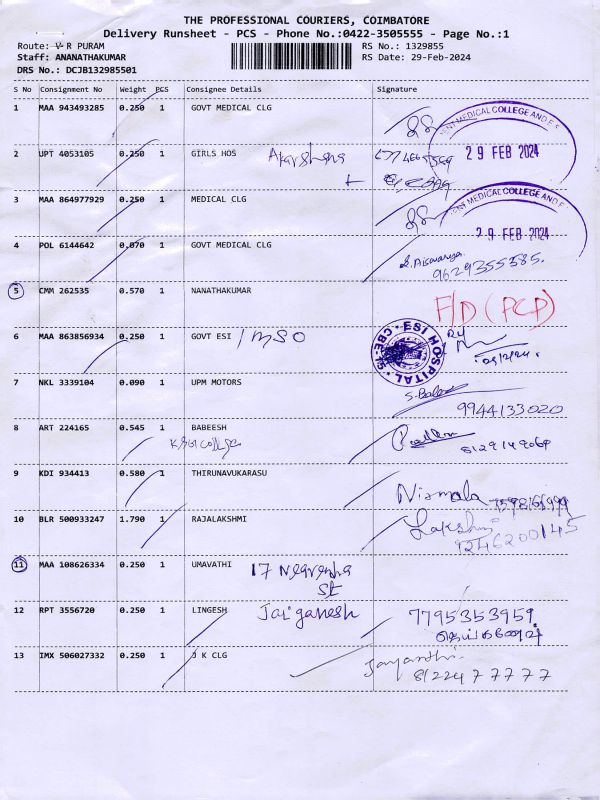 THE PROFESSIONAL COURIERS, COIMBATORE
Delivery Runsheet - PCS - Phone No.:0422-3505555 - Page No.:1
Route: V R PURAM RS No.: 1329855
Staff: ANANATHAKUMAR RS Date: 29-Feb-2024
DRS No.: DCJB132985501
S No Consignment No Weight PCS Consignee Details Signature
1 MAA 943493285 0.250 1 GOVT MEDICAL CLG
MEDICAL COLLEGE AND E.S
2 UPT 4053105 0.250 1 GIRLS HOS 29 FEB 2024
3 MAA 864977929 0.250 1 MEDICAL CLG
MEDICAL COLLEGE AND E.
29 FEB 2024
4 POL 6144642 0.070 1 GOVT MEDICAL CLG
9629355585.
5 CMM 262535 0.570 1 NANATHAKUMAR F/D (PCD)
6 MAA 863856934 0.250 1 GOVT ESI / MSO ESI HOSPITAL CBE-15
7 NKL 3339104 0.090 1 UPM MOTORS
9944133020
8 ART 224165 0.545 1 BABEESH
8129149069
9 KDI 934413 0.580 1 THIRUNAVUKARASU
Nirmala
10 BLR 500933247 1.790 1 RAJALAKSHMI Lakshmi
9246200145
11 MAA 108626334 0.250 1 UMAVATHI 17
St
12 RPT 3556720 0.250 1 LINGESH Jai ganesh 7795353959
13 IMX 506027332 0.250 1 J K CLG Jayanthi
8122477777